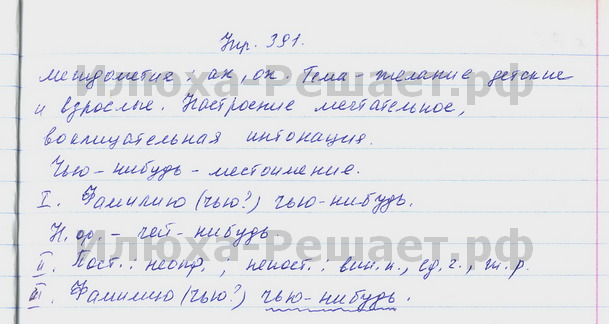 Упр. 391.
Междометия: ах, ох. Тема - желание детские
и взрослые. Настроение мечтательное,
восклицательная интонация.
Чью-нибудь - местоимение.
I. Фамилию (чью?) чью-нибудь.
Н.ф. - чей-нибудь
II. Пост.: неопр.; непост.: вин.п., ед.ч., ж.р.
III. Фамилию (чью?) чью-нибудь.
Илюха-Решает.рф
Илюха-Решает.рф